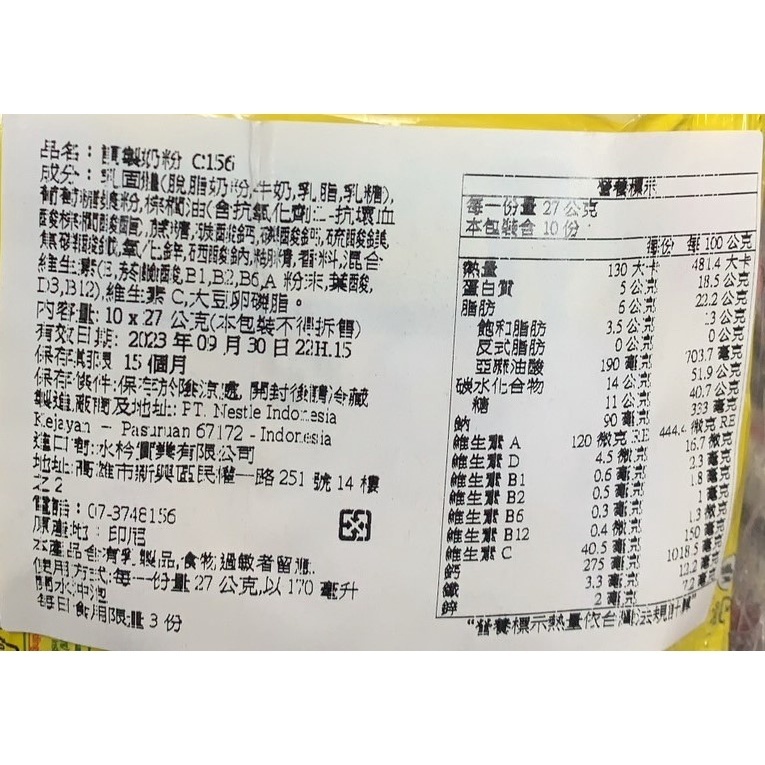 品名：調製奶粉 C156
成分：乳固體(脫脂奶粉,牛奶,乳脂,乳糖),
葡萄糖漿粉,棕櫚油(含抗氧化劑--抗壞血
酸棕櫚酸酯),麥芽糊精,碳酸鈣,磷酸鈣,硫酸鎂,
焦磷酸鐵,氧化鋅,硒酸鈉,糊精,香料,混合
維生素(E,菸鹼酸,B1,B2,B6,A 粉末,葉酸,
D3,B12),維生素 C,大豆卵磷脂。
內容量: 10 x 27 公克(本包裝不得拆售)
有效日期: 2023 年 09 月 30 日 22H.15
保存期限 15 個月
保存條件:保存於陰涼處, 開封後請冷藏
製造廠商及地址: PT. Nestle Indonesia
Kejayan – Pasuruan 67172 - Indonesia
進口商:水枔實業有限公司
地址:高雄市新興區民權一路 251 號 14 樓
之 2
電話: 07-3748156
原產地: 印尼
本產品含有乳製品,食物過敏者留意.
使用方式:每一份量 27 公克,以 170 毫升
開水沖泡
每日食用限量 3 份
營養標示
每一份量 27 公克
本包裝含 10 份
每份 每 100 公克
熱量 130 大卡 481.4 大卡
蛋白質 5 公克 18.5 公克
脂肪 6 公克 22.2 公克
飽和脂肪 3.5 公克 13 公克
反式脂肪 0 公克 0 公克
亞麻油酸 190 毫克 703.7 毫克
碳水化合物 14 公克 51.9 公克
糖 11 公克 40.7 公克
鈉 90 毫克 333 毫克
維生素 A 120 微克 RE 444.4 微克 RE
維生素 D 4.5 微克 16.7 微克
維生素 B1 0.6 毫克 2.3 毫克
維生素 B2 0.5 毫克 1.8 毫克
維生素 B6 0.3 毫克 1 毫克
維生素 B12 0.4 微克 1.3 微克
維生素 C 40.5 毫克 150 毫克
鈣 275 毫克 1018.5 毫克
鐵 3.3 毫克 12.2 毫克
鋅 2 毫克 7.2 毫克
“營養標示熱量依台灣法規時標”